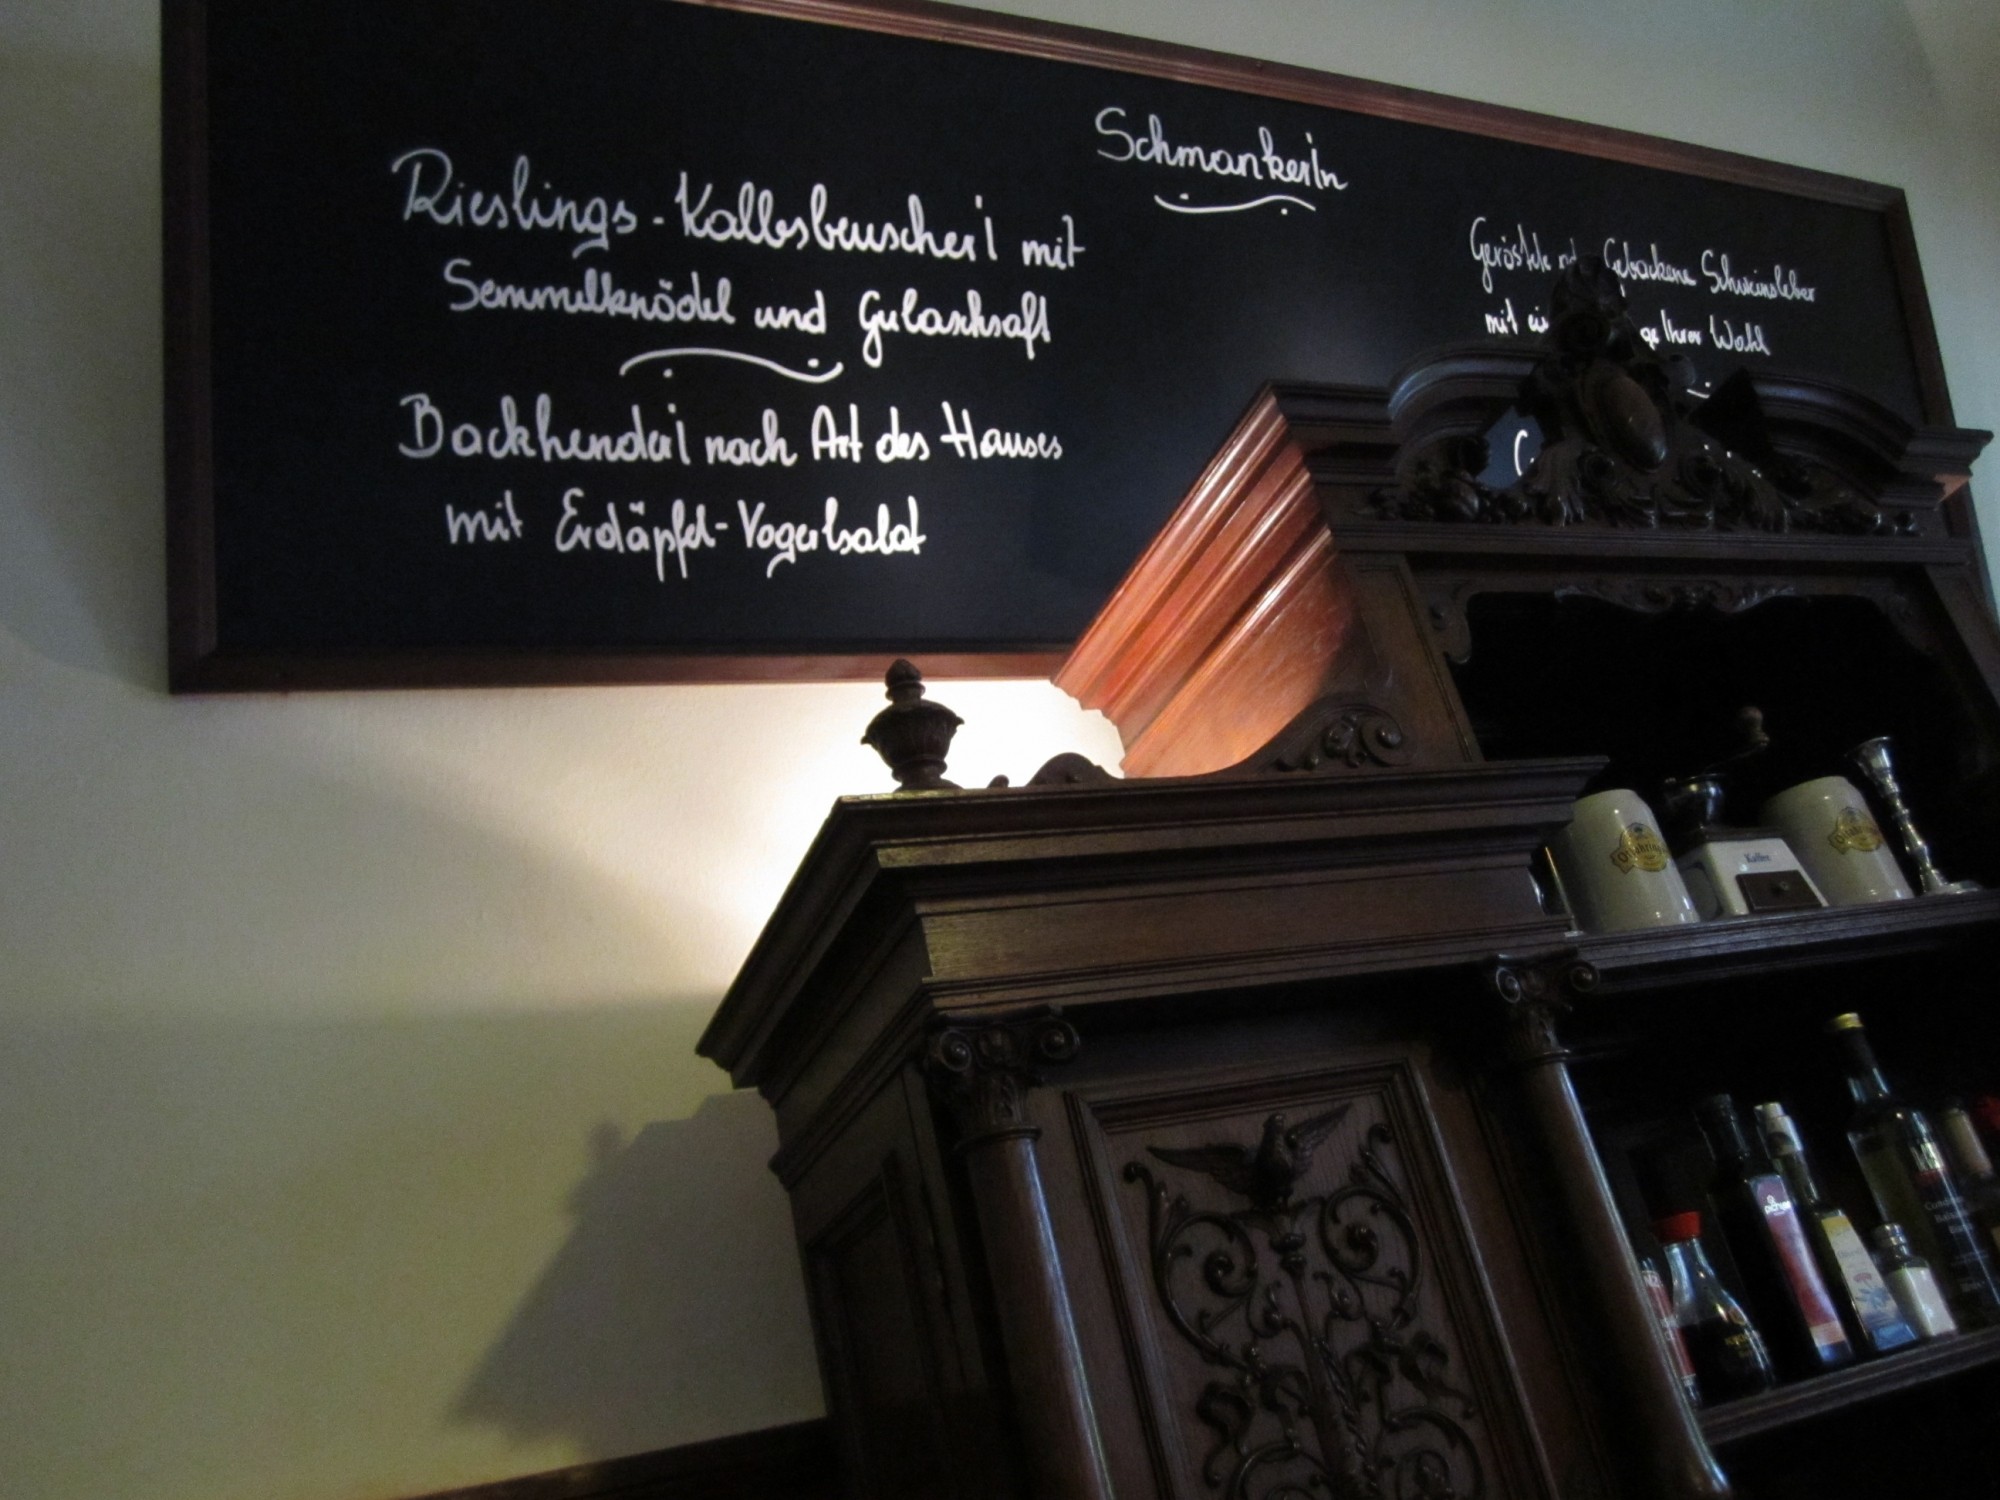 Schmankerln
Rieslings-Kalbsbeuscherl mit
Semmelknödel und Gulaschsaft
Backhenderl nach Art des Hauses
mit Erdäpfel-Vogerlsalat
Geröstete Gebackene Schweinsleber
mit Ihrer Wahl
Kaffee